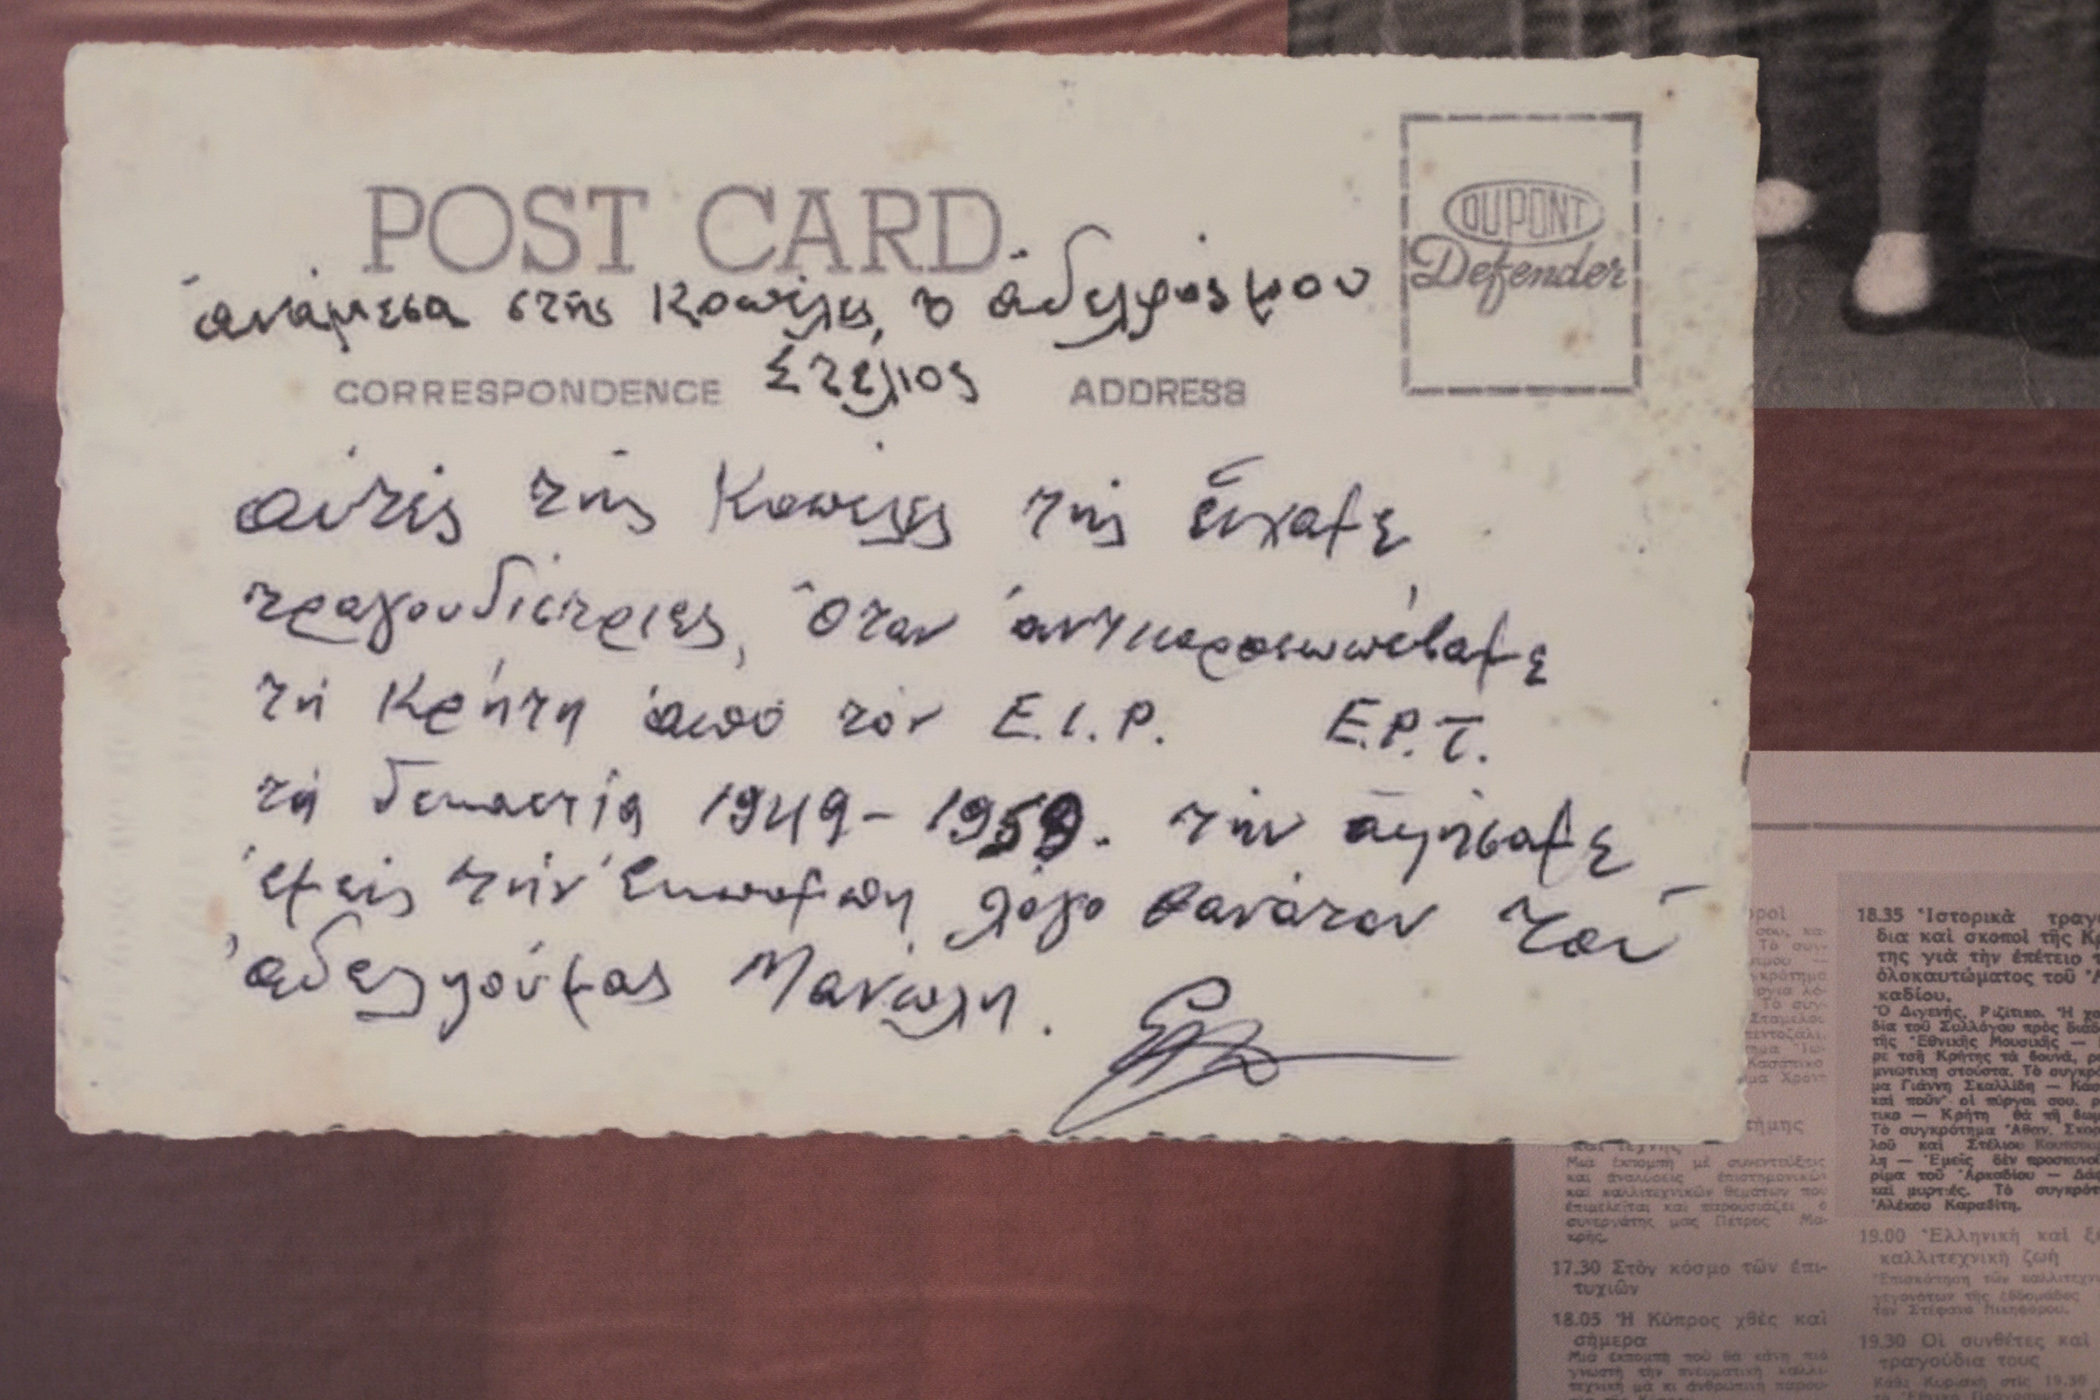 POST CARD
DUPONT
Defender
ἀνάμεσα στῆς Κοπέλες, ὁ ἀδελφός μου
Στέλιος
CORRESPONDENCE ADDRESS
αὐτές τῆς Κοπέλες τῆς εἴχαμε
τραγουδίστριες, ὅταν ἀντιπροσωπέβαμε
τή Κρήτη ἀπό τόν Ε.Ι.Ρ. Ε.Ρ.Τ.
τή δεκαετία 1949-1959. τήν ἀφήσαμε
ἐμεῖς τήν ἐκπομπη λόγο θανάτου τοῦ
ἀδελφοῦ μας Μανώλη.
18.35 Ἱστορικὰ τραγ
δια καὶ σκοποὶ τῆς Κ
της γιὰ τὴν ἐπέτειο τ
ὁλοκαυτώματος τοῦ Ἀ
καδίου.
Ὁ Διγενής, Ριζίτικο. Ἡ χο
δία τοῦ Συλλόγου πρὸς διά
τῆς Ἐθνικῆς Μουσικῆς —
ρε τσῆ Κρήτης τὰ βουνά, ρ
μνιώτικη σούστα. Τὸ συγκρό
μα Γιάννη Σκαλλίδη — Κά
καὶ ποῦν' οἱ πύργοι σου. ρ
τικο — Κρήτη θὰ τῆ δω
Τὸ συγκρότημα Ἀθαν. Σκορ
λοῦ καὶ Στέλιου Κουτσου
λη — Ἐμεῖς δὲν προσκυνοῦ
ρίμα τοῦ Ἀρκαδίου — Δά
καὶ μυρτιές. Τὸ συγκρότ
Ἀλέκου Καραβίτη.
19.00 Ἑλληνικὴ καὶ ξέ
καλλιτεχνικὴ ζωὴ
Ἐπισκόπηση τῶν καλλιτεχνι
γεγονότων τῆς ἑβδομάδος
τὸν Στέφανο Νικηφόρου.
19.30 Οἱ συνθέτες καὶ
τραγούδια τους
Κάθε Κυριακὴ στὶς 19.30
καὶ τέχνης
Μιὰ ἐκπομπὴ μὲ συνεντεύξεις
καὶ ἀναλύσεις ἐπιστημονικῶν
καὶ καλλιτεχνικῶν θεμάτων ποὺ
ἐπιμελεῖται καὶ παρουσιάζει ὁ
συνεργάτης μας Πέτρος Μα-
κρῆς.
17.30 Στὸν κόσμο τῶν ἐπι-
τυχιῶν
18.05 Ἡ Κύπρος χθὲς καὶ
σήμερα
Μιὰ ἐκπομπὴ ποὺ θὰ κάνη πιὸ
γνωστὴ τὴν πνευματικὴ καλλι-
τεχνικὴ μὰ κι ἀνθρώπινη παρου-